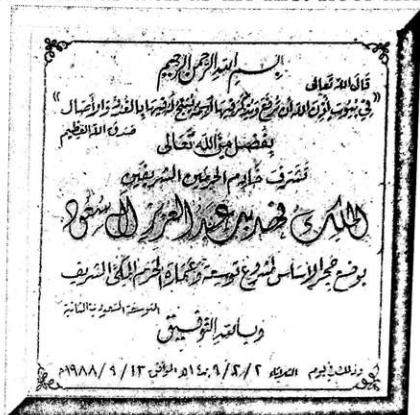 بسم الله الرحمن الرحيم
قال الله تعالى
"في بيوت أذن الله أن ترفع ويذكر فيها اسمه يسبح له فيها بالغدو والآصال"
صدق الله العظيم
بفضل من الله تعالى
تشرف خادم الحرمين الشريفين
الملك فهد بن عبد العزيز آل سعود
بوضع حجر الأساس لمشروع توسعة وعمارة الحرم المكي الشريف
التوسعة السعودية الثانية
وبالله التوفيق
وذلك في يوم الثلاثاء ١٤٠٩/٢/٢هـ الموافق ١٩٨٨/٩/١٣م